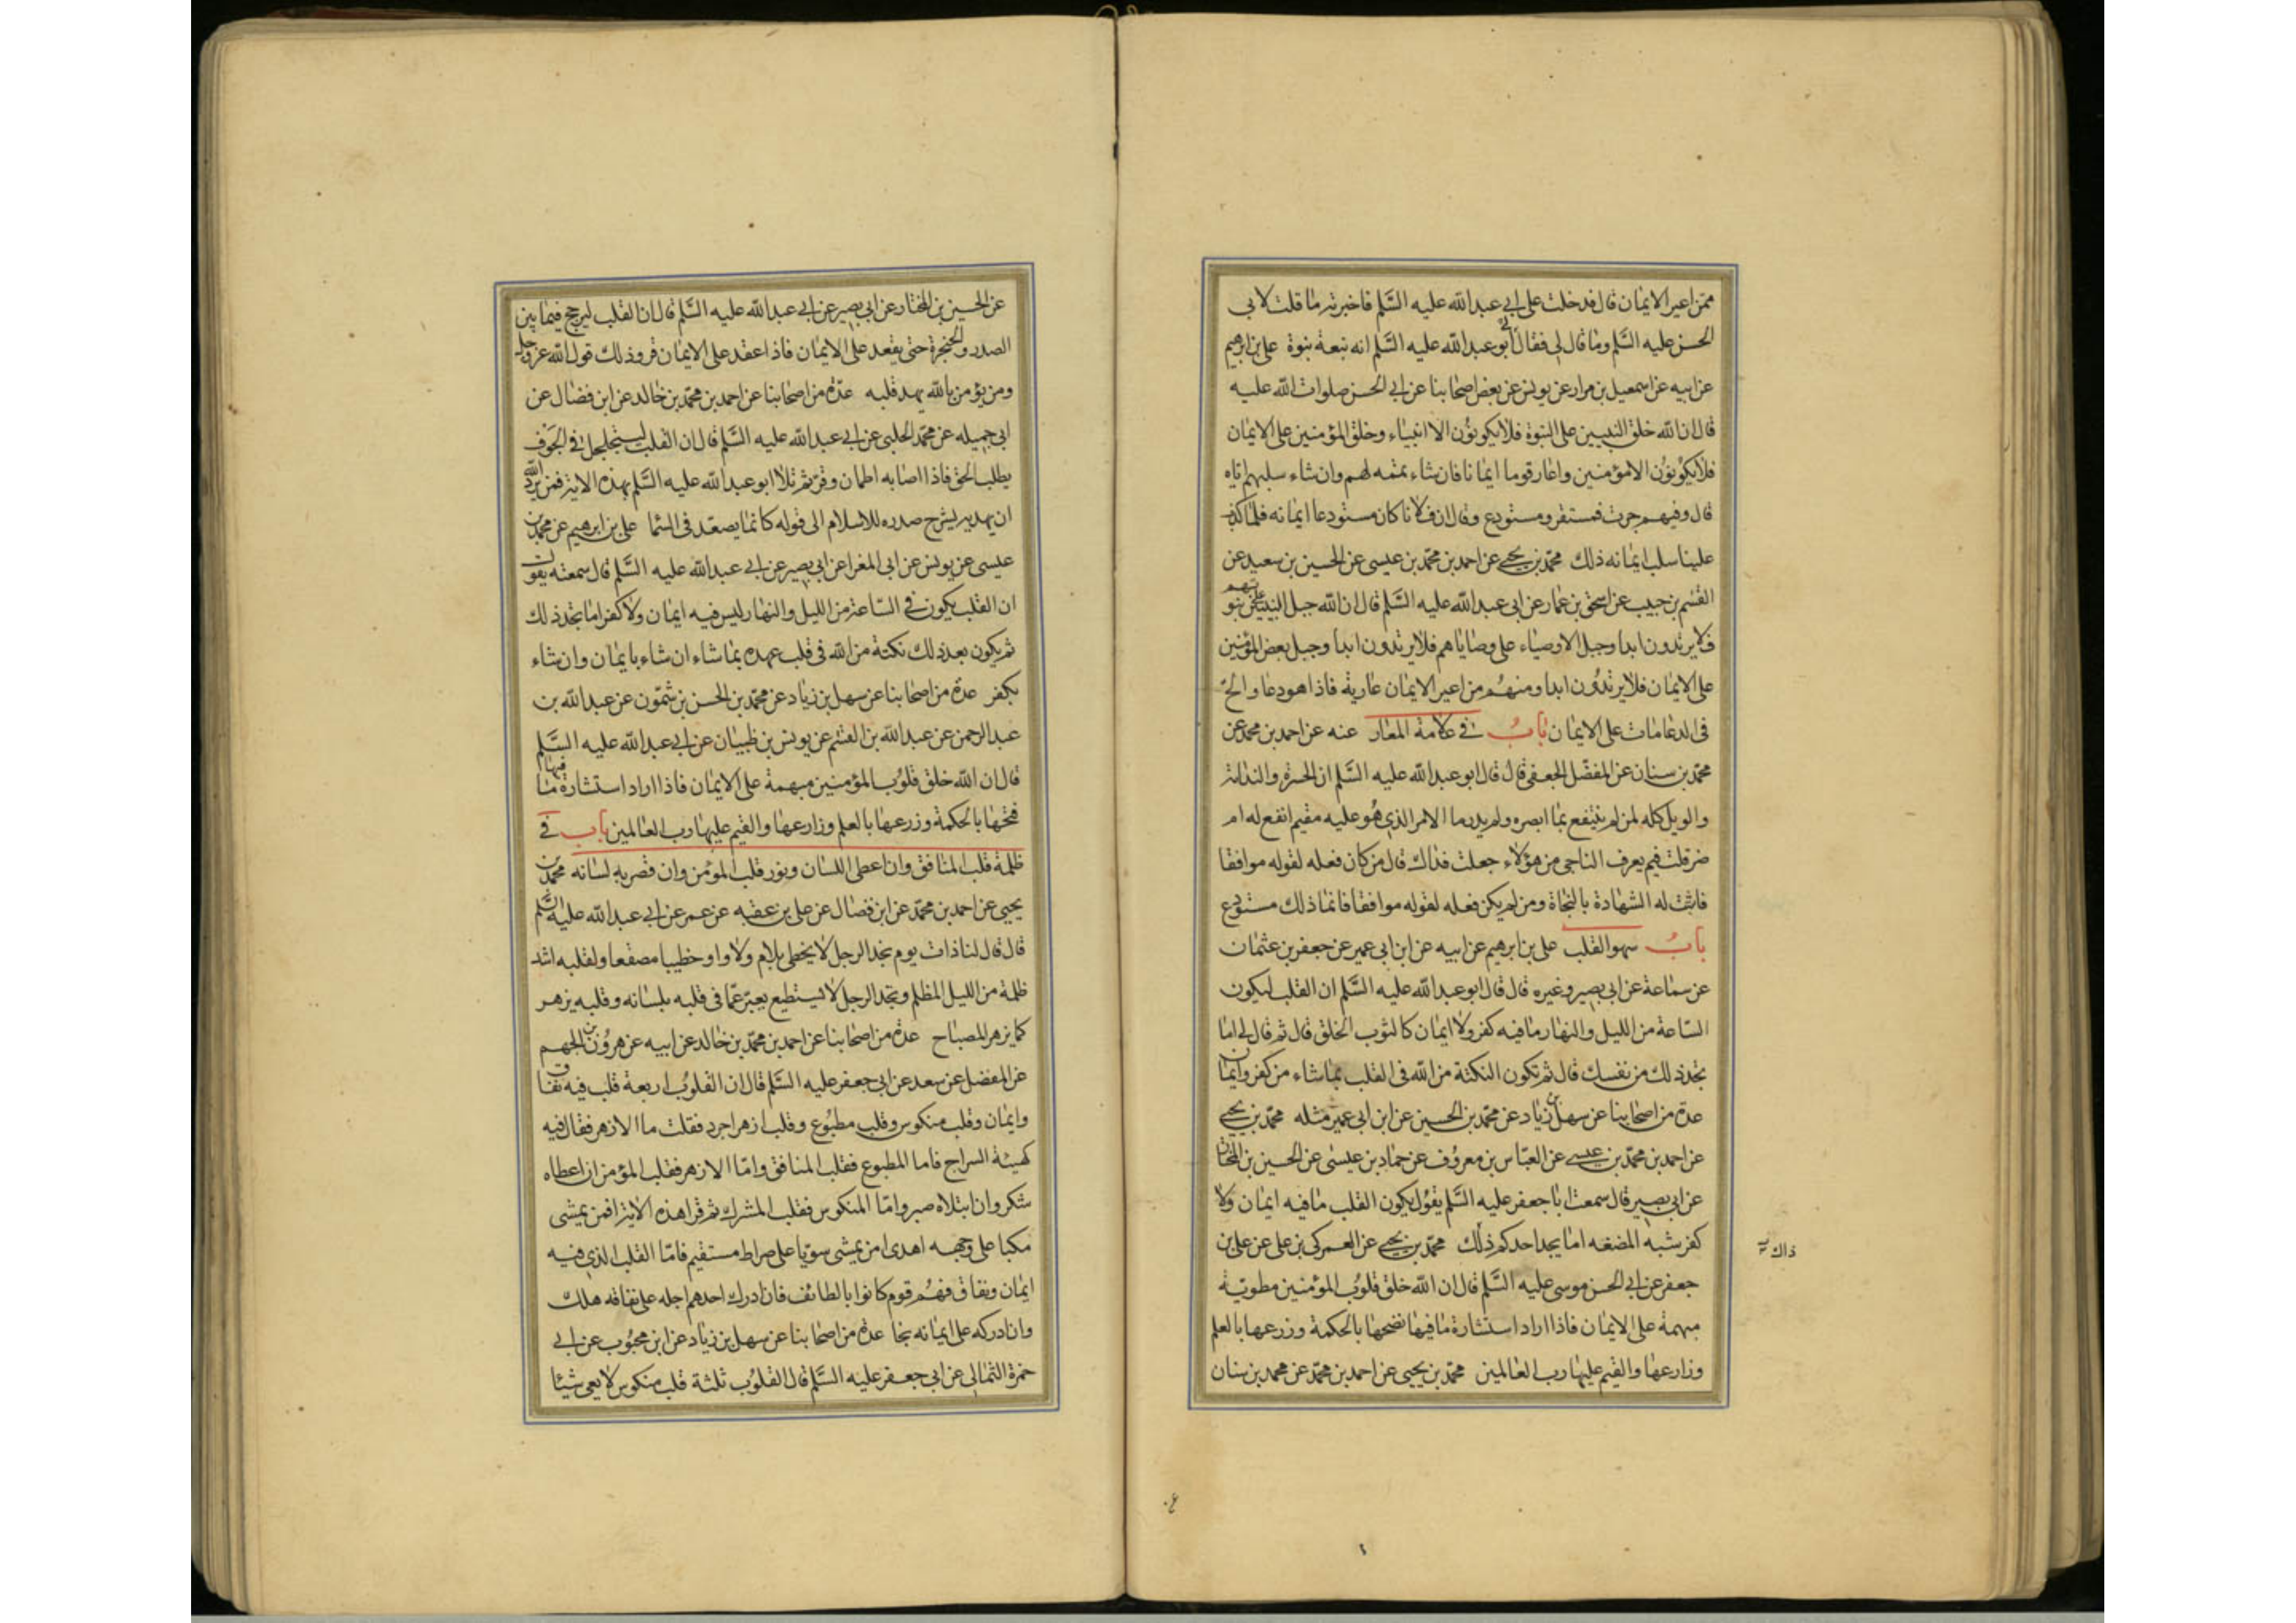 ممن اعير الايمان قال فدخلت على ابي عبد الله عليه السلم فاخبرته ما قلت لابي
الحسن عليه السلم وما قال لي فقال ابو عبد الله عليه السلم انه نبعة نبوة علي بن ابرهيم
عن ابيه عن اسمعيل بن مرار عن يونس عن بعض اصحابنا عن ابي الحسن صلوات الله عليه
قال ان الله خلق النبيين على النبوة فلا يكونون الا انبياء وخلق المؤمنين على الايمان
فلا يكونون الا مؤمنين واعار قوما ايمانا فان شاء تممه لهم وان شاء سلبهم اياه
قال وفيهم جرت فمستقر ومستودع وقال ان فلانا كان مستودعا ايمانه فلما كذب
علينا سلب ايمانه ذلك محمد بن يحيى عن احمد بن محمد بن عيسى عن الحسين بن سعيد عن
القسم بن حبيب عن اسحق بن عمار عن ابي عبد الله عليه السلم قال ان الله جبل النبيين على نبوتهم
فلا يرتدون ابدا وجبل الاوصياء على وصاياهم فلا يرتدون ابدا وجبل بعض المؤمنين
على الايمان فلا يرتدون ابدا ومنهم من اعير الايمان عارية فاذا هو دعا والح
في الدعا مات على الايمان باب في علامة المعار عنه عن احمد بن محمد عن
محمد بن سنان عن المفضل الجعفي قال قال ابو عبد الله عليه السلم ان الحسرة والندامة
والويل كله لمن لم ينتفع بما ابصره ولم يدر ما الامر الذي هو عليه مقيم انفع له ام
ضر قلت فيم يعرف الناجي من هؤلاء جعلت فداك قال من كان فعله لقوله موافقا
فاثبت له الشهادة بالنجاة ومن لم يكن فعله لقوله موافقا فانما ذلك مستودع
باب سهو القلب علي بن ابرهيم عن ابيه عن ابن ابي عمير عن جعفر بن عثمان
عن سماعة عن ابي بصير وغيره قال قال ابو عبد الله عليه السلم ان القلب ليكون
الساعة من الليل والنهار ما فيه كفر ولا ايمان كالثوب الخلق قال ثم قال لي اما
تجد ذلك من نفسك قال ثم تكون النكتة من الله في القلب بما شاء من كفر وايمان
عدة من اصحابنا عن سهل بن زياد عن محمد بن الحسين عن ابن ابي عمير مثله محمد بن يحيى
عن احمد بن محمد بن عيسى عن العباس بن معروف عن حماد بن عيسى عن الحسين بن المختار
عن ابي بصير قال سمعت ابا جعفر عليه السلم يقول يكون القلب ما فيه ايمان ولا
كفر شبه المضغه اما يجد احدكم ذلك محمد بن يحيى عن العمركي بن علي عن علي بن
ذاك
جعفر عن ابي الحسن موسى عليه السلم قال ان الله خلق قلوب المؤمنين مطوية
مبهمة على الايمان فاذا اراد استنارة ما فيها نضحها بالحكمة وزرعها بالعلم
وزارعها والقيم عليها رب العالمين محمد بن يحيى عن احمد بن محمد عن محمد بن سنان
عن الحسين بن المختار عن ابي بصير عن ابي عبد الله عليه السلم قال ان القلب ليرجج فيما بين
الصدر والحنجرة حتى يعقد على الايمان فاذا عقد على الايمان قر وذلك قول الله عز وجل
ومن يؤمن بالله يهد قلبه عدة من اصحابنا عن احمد بن محمد بن خالد عن ابن فضال عن
ابي جميله عن محمد الحلبي عن ابي عبد الله عليه السلم قال ان القلب ليتجلجل في الجوف
يطلب الحق فاذا اصابه اطمان وقر ثم تلا ابو عبد الله عليه السلم هذه الاية فمن يرد الله
ان يهديه يشرح صدره للاسلام الى قوله كانما يصعد في السما علي بن ابرهيم عن محمد بن
عيسى عن يونس عن ابي المغرا عن ابي بصير عن ابي عبد الله عليه السلم قال سمعته يقول
ان القلب يكون في الساعة من الليل والنهار ليس فيه ايمان ولا كفر اما تجد ذلك
ثم يكون بعد ذلك نكتة من الله في قلب عبده بما شاء ان شاء بايمان وان شاء
بكفر عدة من اصحابنا عن سهل بن زياد عن محمد بن الحسن بن شمون عن عبد الله بن
عبد الرحمن عن عبد الله بن القسم عن يونس بن ظبيان عن ابي عبد الله عليه السلم
قال ان الله خلق قلوب المؤمنين مبهمة على الايمان فاذا اراد استثارة ما فيها
فتحها بالحكمة وزرعها بالعلم وزارعها والقيم عليها رب العالمين باب في
ظلمة قلب المنافق وان اعطى اللسان ونور قلب المؤمن وان قصر به لسانه محمد بن
يحيى عن احمد بن محمد عن ابن فضال عن علي بن عقبه عن عمر عن ابي عبد الله عليه السلم
قال قال لنا ذات يوم تجد الرجل لا يخطى بلام ولا واو خطيبا مصقعا ولقلبه اشد
ظلمة من الليل المظلم وتجد الرجل لا يستطيع يعبر عما في قلبه بلسانه وقلبه يزهر
كما يزهر المصباح عدة من اصحابنا عن احمد بن محمد بن خالد عن ابيه عن هرون بن الجهم
عن المفضل عن سعد عن ابي جعفر عليه السلم قال ان القلوب اربعة قلب فيه نفاق
وايمان وقلب منكوس وقلب مطبوع وقلب ازهر اجرد فقلت ما الازهر فقال فيه
كهيئة السراج فاما المطبوع فقلب المنافق واما الازهر فقلب المؤمن ان اعطاه
شكر وان ابتلاه صبر واما المنكوس فقلب المشرك ثم قرا هذه الاية افمن يمشى
مكبا على وجهه اهدى امن يمشى سويا على صراط مستقيم فاما القلب الذي فيه
ايمان ونفاق فهم قوم كانوا بالطائف فان ادرك احدهم اجله على نفاقه هلك
وان ادركه على ايمانه نجا عدة من اصحابنا عن سهل بن زياد عن ابن محبوب عن ابي
حمزة الثمالي عن ابي جعفر عليه السلم قال القلوب ثلثة قلب منكوس لا يعي شيئا